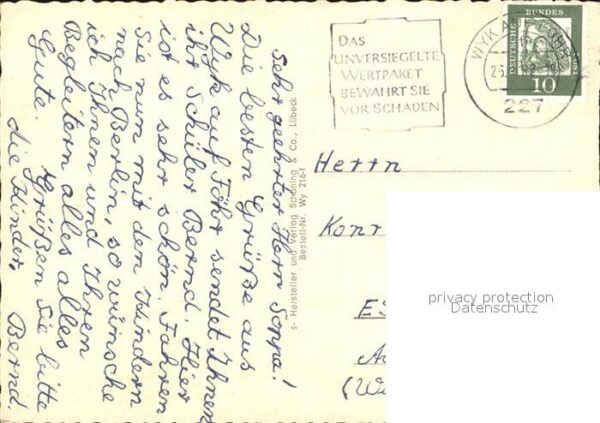 Sehr geehrter Herr Soppa!
Die besten Grüße aus
Wyk auf Föhr sendet Ihnen
ihr Schüler Bernd. Hier
ist es sehr schön. Fahren
Sie nun mit den Kindern
nach Berlin, so wünsche
ich Ihnen und Ihren
Begleitern alles alles
Gute. Grüßen Sie bitte
die Kinder. Bernd.
s- Hersteller und Verlag Schöning & Co., Lübeck
Bestell-Nr. Wy 216-f
DAS
UNVERSIEGELTE
WERTPAKET
BEWAHRT SIE
VOR SCHADEN
WYK
227
DEUTSCHE BUNDESPOST
10
Herrn
Konr
ES
(W
privacy protection
Datenschutz